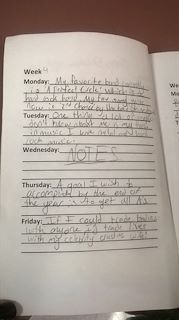 Week 4
Monday: My favorite band currently
is "A Perfect Circle" which is a
hard rock band. My fav song right
now is
Tuesday: One thing a lot of
don't know about me is my
in music. I love metal and
rock music.
Wednesday:
NOTES
Thursday: A goal I wish to
accomplish by the end of
the year is to get all A's.
Friday: If I could trade bodies
with anyone I'd trade lives
with my celebrity crushes wife!